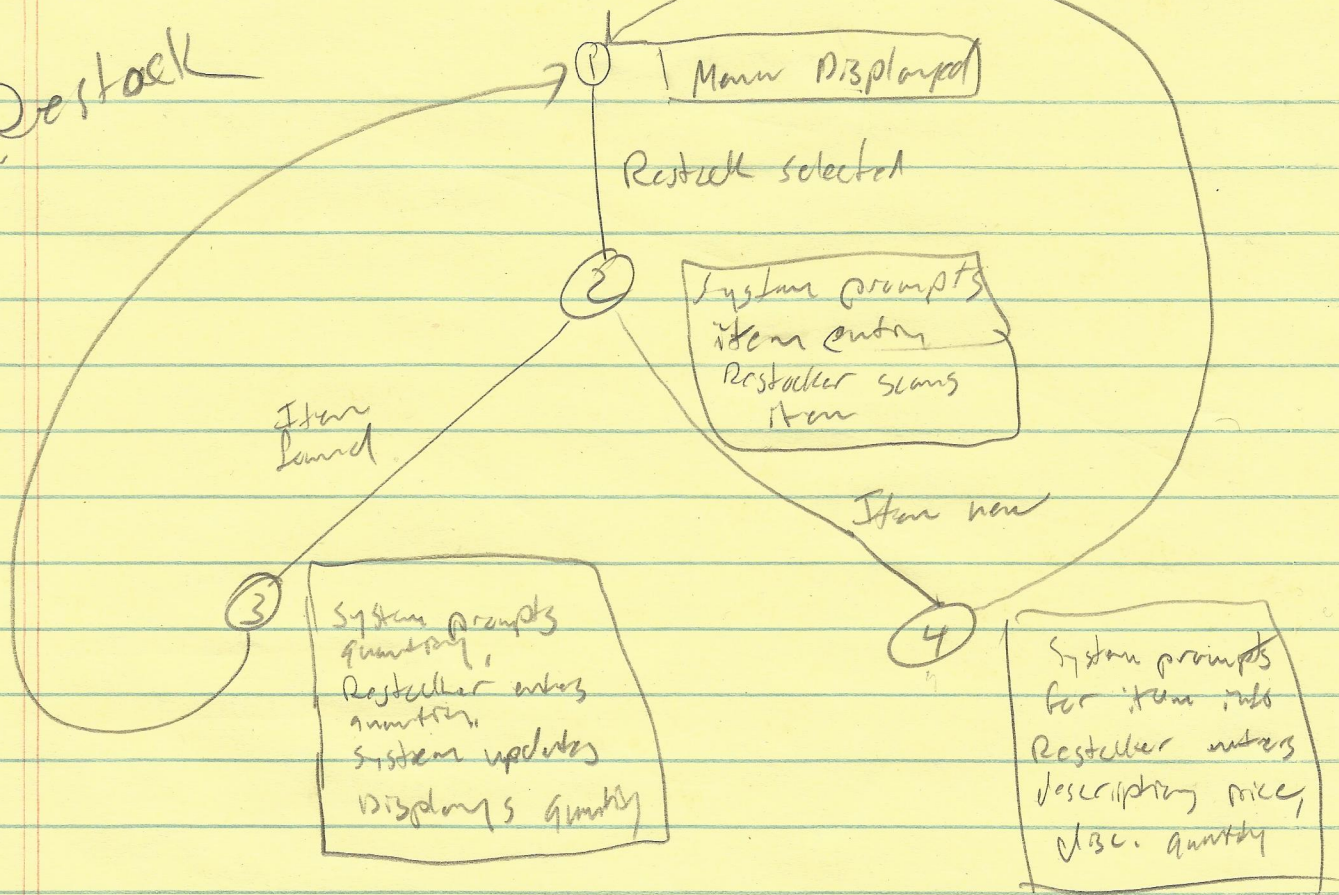 Restock
1
Menu Displayed
Restock selected
2
System prompts
item entry
Restocker scans
item
Item
found
Item new
3
System prompts
quantity,
Restocker enters
quantity,
System updates
Displays quantity
4
System prompts
for item info
Restocker enters
description, price,
disc. quantity